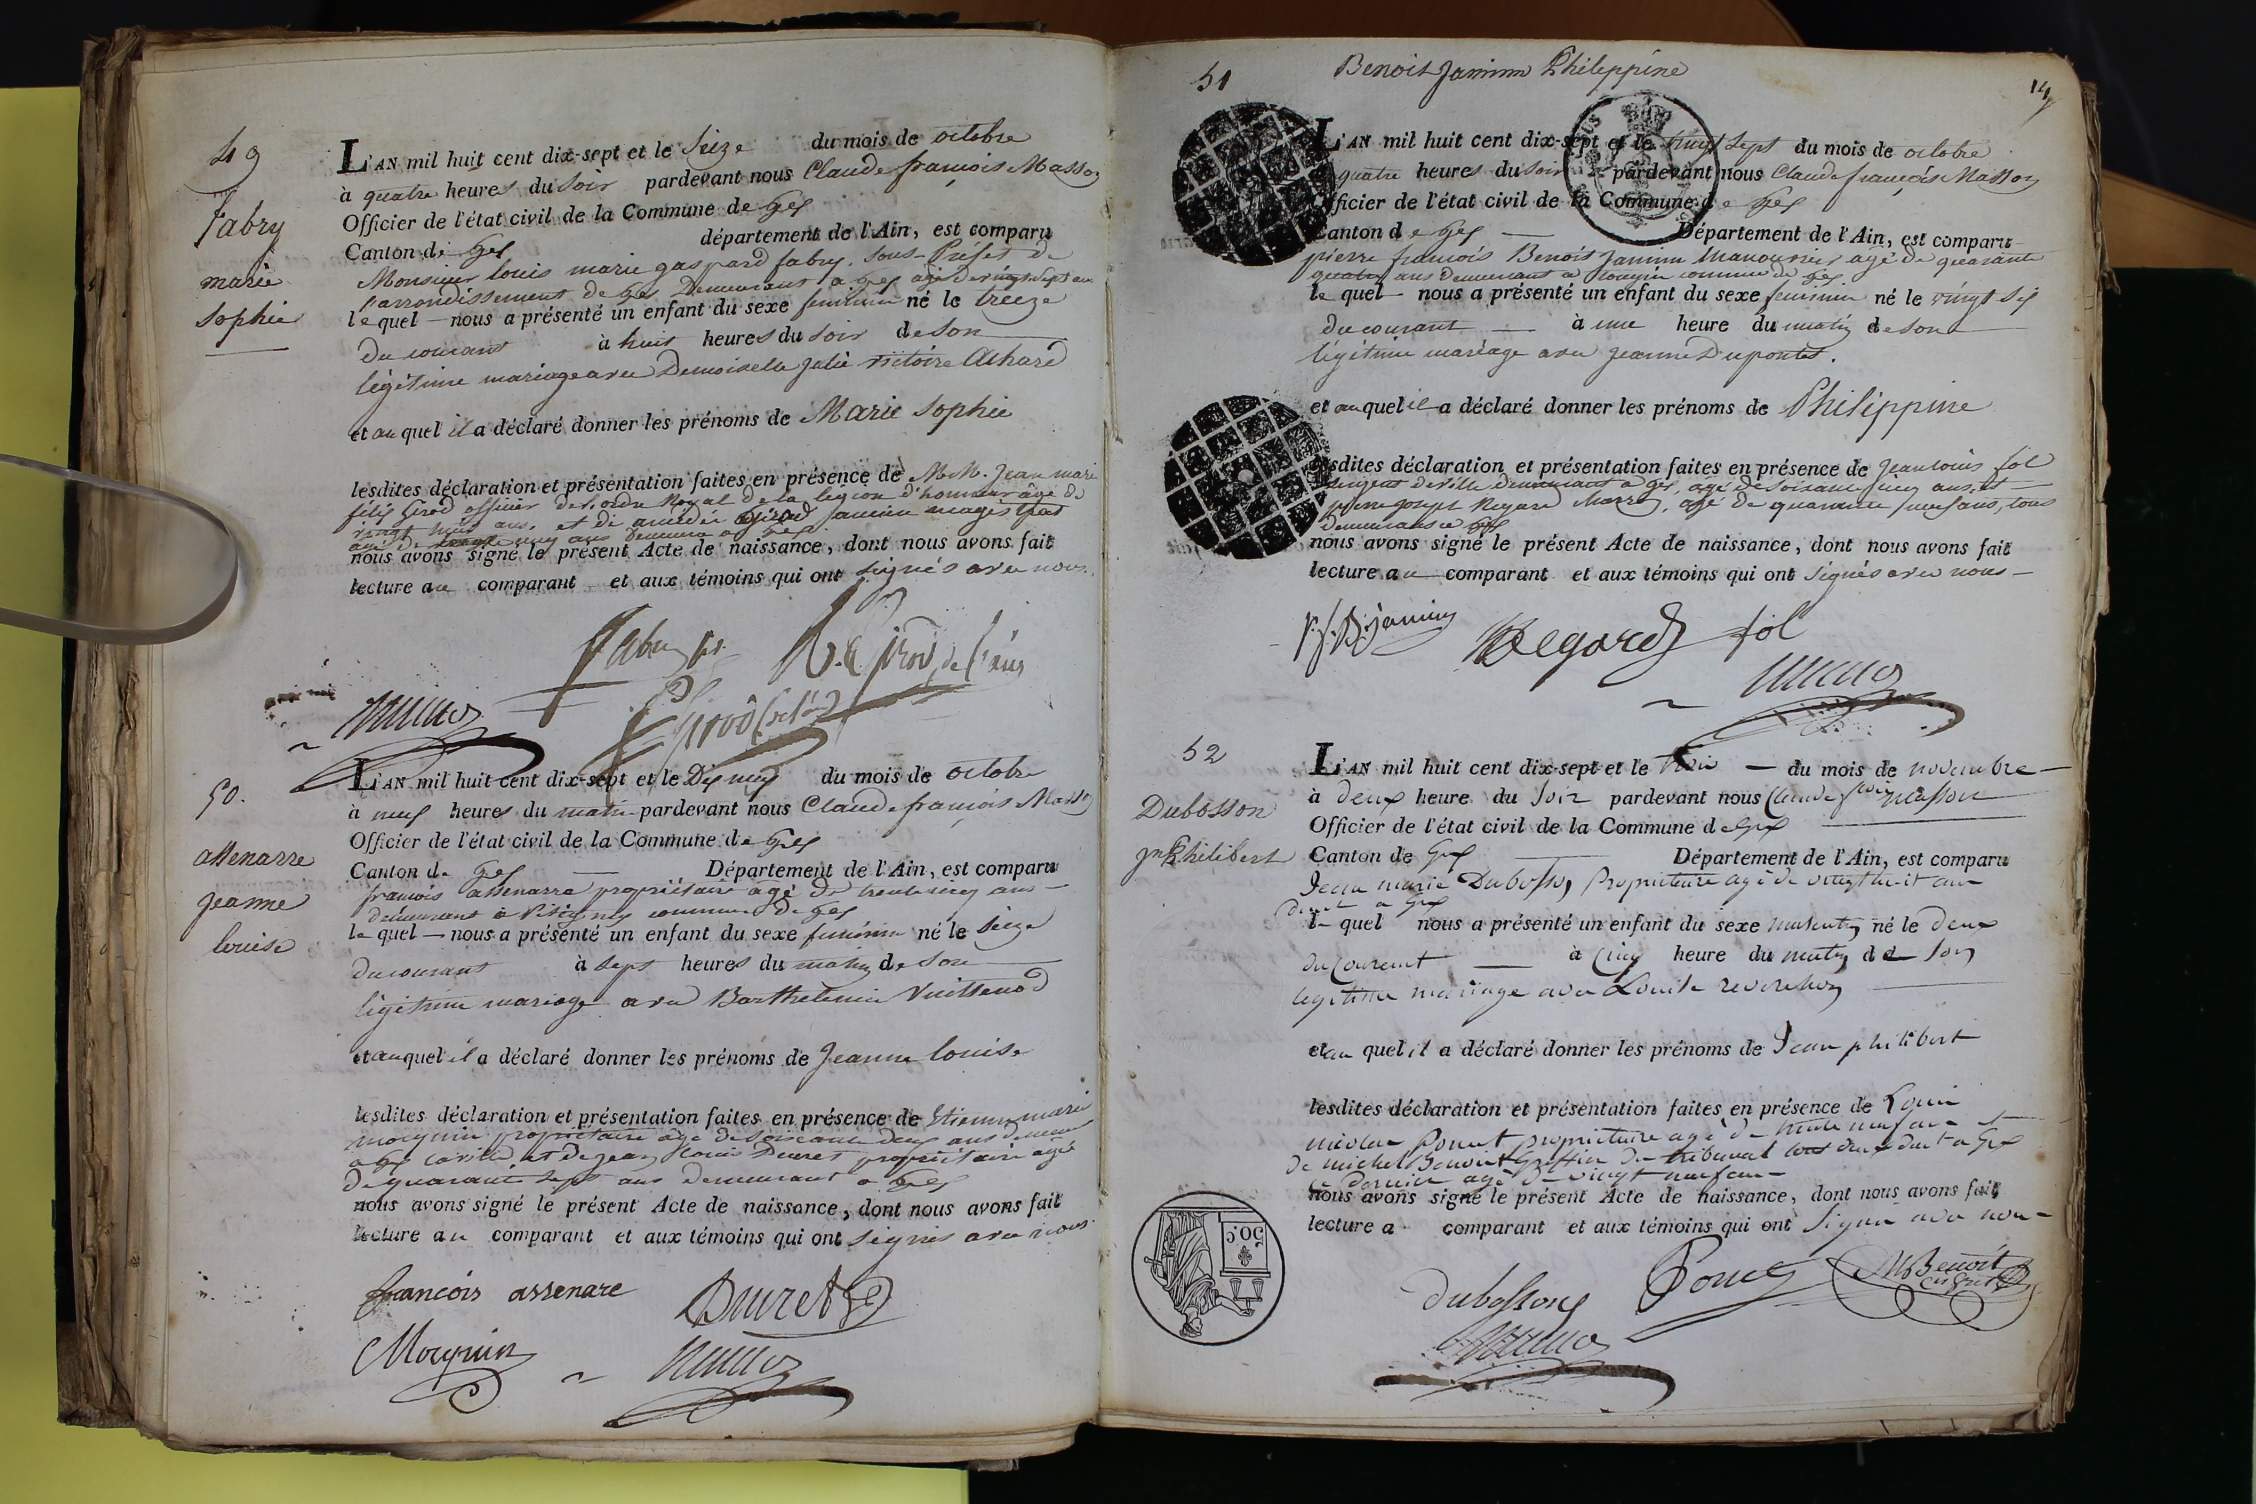 49
Fabry
marie
Sophie
L'AN mil huit cent dix-sept et le Seize du mois de octobre
à quatre heures du Soir pardevant nous Claude françois Masson
Officier de l'état civil de la Commune de Gex
Canton de Gex département de l'Ain, est comparu
Monsieur Louis marie gaspard fabry, Sous-Préfet de
l'arrondissement de Gex Demeurant à Gex agé de vingt sept ans
lequel nous a présenté un enfant du sexe féminin né le treize
du courant à huit heures du soir de son
légitime mariage avec Demoiselle Julie victoire Achard
et auquel il a déclaré donner les prénoms de Marie Sophie
lesdites déclaration et présentation faites en présence de M.M. Jean marie
félix Girod officier de l'ordre Royal de la légion d'honneur âgé de
vingt ans, et de amédée Girod
agé de cinq ans demeurant à Gex
nous avons signé le présent Acte de naissance, dont nous avons fait
lecture au comparant et aux témoins qui ont signés avec nous.
Fabry
Girod de l'ain
Girod (de l'ain)
50.
assenarre
jeanne
louise
L'AN mil huit cent dix-sept et le Dix neuf du mois de octobre
à neuf heures du matin pardevant nous Claude françois Masson
Officier de l'état civil de la Commune de Gex
Canton de Gex Département de l'Ain, est comparu
françois assenarre propriétaire agé de trente cinq ans
demeurant à Pitegny commune de Gex
le quel nous a présenté un enfant du sexe féminin né le seize
du courant à sept heures du matin de son
légitime mariage avec Barthelemie Vuillenod
et auquel il a déclaré donner les prénoms de Jeanne Louise
lesdites déclaration et présentation faites en présence de Etienne marie
mocquin propriétaire agé de soixante deux ans demeurant
à Gex la ville et de jean louis Duret propriétaire agé
de quarante sept ans demeurant à Gex
nous avons signé le présent Acte de naissance, dont nous avons fait
lecture au comparant et aux témoins qui ont signés avec nous.
françois assenare Duret
Mocquin
51
Benoit Jannin Philippine
14
L'AN mil huit cent dix-sept et le vingt sept du mois de octobre
à quatre heures du soir pardevant nous Claude françois Masson
Officier de l'état civil de la Commune de Gex
Canton de Gex Département de l'Ain, est comparu
pierre françois Benoit Jannin Manouvrier agé de quarante
quatre ans demeurant à commune de Gex
le quel nous a présenté un enfant du sexe féminin né le vingt six
du courant à une heure du matin de son
légitime mariage avec Jeanne Dupontet.
et auquel il a déclaré donner les prénoms de Philippine
lesdites déclaration et présentation faites en présence de Jean louis fol
sergent de ville demeurant à Gex, agé de soixante cinq ans, et
pierre joseph Regard Marre, agé de quarante neuf ans, tous
demeurans à Gex
nous avons signé le présent Acte de naissance, dont nous avons fait
lecture au comparant et aux témoins qui ont signés avec nous
p. f. B. jannin Regard fol
52
Dubosson
jn Philibert
L'AN mil huit cent dix-sept et le trois du mois de novembre
à deux heure du soir pardevant nous Claude fcois masson
Officier de l'état civil de la Commune de Gex
Canton de Gex Département de l'Ain, est comparu
Jean marie Dubosson Propriétaire agé de vingt huit ans
demt à Gex
le quel nous a présenté un enfant du sexe masculin né le deux
du Courant à cinq heure du matin de son
légitime mariage avec Louise reverchon
et au quel il a déclaré donner les prénoms de Jean philibert
lesdites déclaration et présentation faites en présence de Louis
nicolas Poncet propriétaire agé de trente neuf ans et
de michel Benoit Greffier du tribunal tous deux demt à Gex
ce dernier agé de vingt neuf ans
nous avons signé le présent Acte de naissance, dont nous avons fait
lecture a comparant et aux témoins qui ont signé avec nous
50.C
dubosson Poncet M Benoit